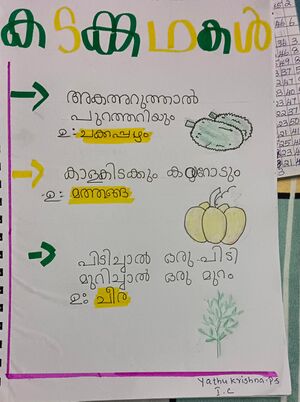 കടങ്കഥകൾ
അകത്തറുത്താൽ
പുറത്തറിയും
ഉ: ചക്കപ്പഴം
കാളകിടക്കും കയറോടും
ഉ: മത്തങ്ങ
പിടിച്ചാൽ ഒരു പിടി
മുറിച്ചാൽ ഒരു മുറം
ഉ: ചീര
Yathu krishna. P.S
I. C